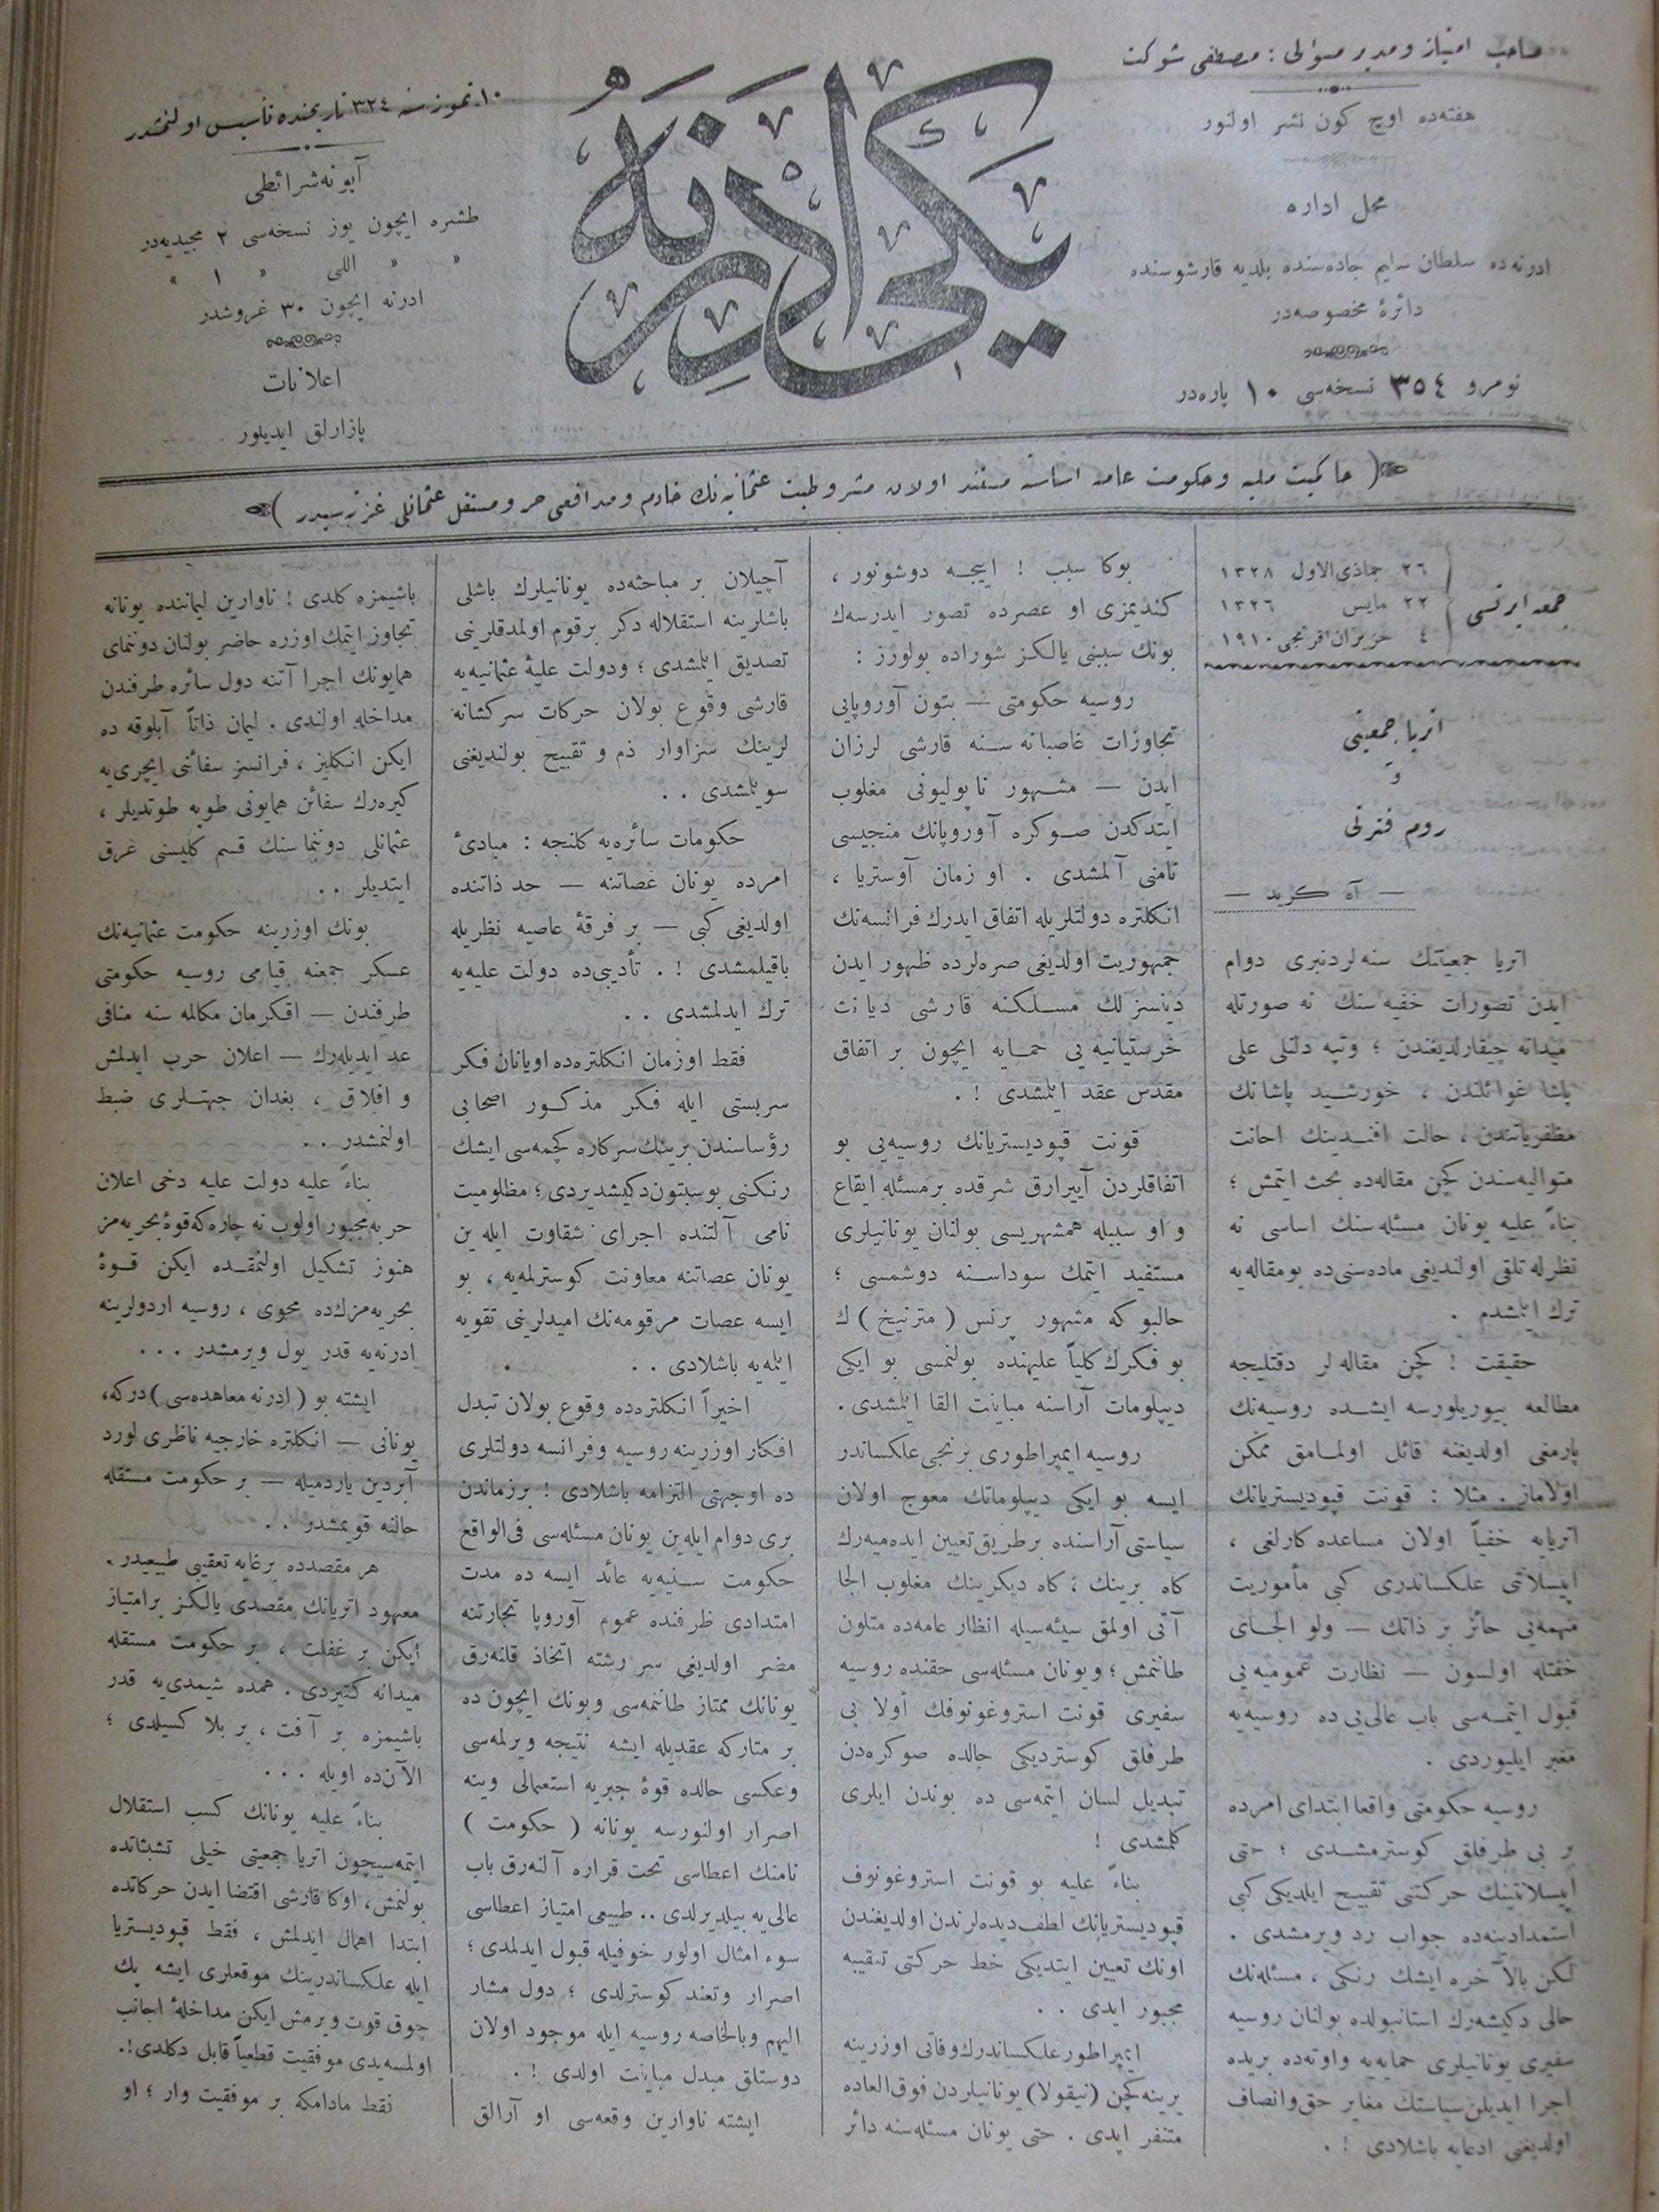 صاحب امتیاز و مدیر مسؤلی : مصطفی شوکت
هفته‌ده اوچ کون نشر اولنور
محل اداره
ادرنه‌ده سلطان سلیم جاده‌سنده بلدیه قارشوسنده
دائرهٔ مخصوصه‌در
نومرو ٣٥٤ نسخه‌سی ١٠ پاره‌در
یکی ادرنه
١٠ تموز سنه ٣٢٤ تاریخنده تأسیس اولنمشدر
آبونه شرائطی
طشره ایچون یوز نسخه‌سی ٢ مجیدیه‌در
» » اللی » ١ »
ادرنه ایچون ٣٠ غروشدر
اعلانات
پازارلق ایدیلور
( حاکمیت ملیه و حکومت عامه اساسنه مستند اولان مشروطیت عثمانیه‌نك خادم و مدافعی حر و مستقل عثمانلی غزته‌سیدر )
جمعه ایرتسی
٢٦ جماذی‌الاول ١٣٢٨
٢٢ مایس ١٣٢٦
٤ حزیران افرنجی ١٩١٠
اتریا جمعیتی
و
روم فنرلی
— آه کرید —
اتریا جمعیتنك سنه‌لردنبری دوام
ایدن تصورات خفیه‌سنك نه صورتله
میدانه چیقارلدیغندن ؛ وتپه دلنلی علی
پاشا غوائلندن ، خورشید پاشانك
مظفریاتندن ، حالت افندینك اخانت
متوالیه‌سندن کچن مقاله‌ده بحث ایتمش ؛
بناءً علیه یونان مسئله‌سنك اساسی نه
نظرله تلقی اولندیغی ماده‌سنی‌ده بومقاله‌یه
ترك ایلمشدم .
حقیقت ! کچن مقاله‌لر دقتلیجه
مطالعه بیوریلورسه ایشده روسیه‌نك
پارمغی اولدیغنه قائل اولمامق ممکن
اولاماز . مثلا : قونت قپودیستریانك
اتریایه خفیاً اولان مساعده کارلغی ،
ایپسلانتی علکساندری کبی مأموریت
مهمه‌یی حائز بر ذاتك — ولو الجای
خفتله اولسون — نظارت عمومیه‌یی
قبول ایتمه‌سی باب عالی‌یی ده روسیه‌یه
مغبر ایلیوردی .
روسیه حکومتی واقعا ابتدای امرده
بر بی طرفلق کوسترمشدی ؛ حتی
ایپسلانتینك حرکتنی تقبیح ایلدیکی کبی
استمدادینه‌ده جواب رد ویرمشدی .
لکن بالآخره ایشك رنکی ، مسئله‌نك
حالی دکیشه‌رك استانبولده بولنان روسیه
سفیری یونانیلری حمایه‌یه واوته‌ده بریده
اجرا ایدیلن سیاستك مغایر حق وانصاف
اولدیغنی ادعایه باشلادی ! .
بوکا سبب ! اییجه دوشونور ،
کندیمزی او عصرده تصور ایدرسه‌ك
بونك سببنی یالکز شوراده بولورز :
روسیه حکومتی — بتون آوروپایی
تجاوزات غاصبانه‌سنه قارشی لرزان
ایدن — مشهور ناپولیونی مغلوب
ایتدکدن صوکره آوروپانك منجیسی
نامنی آلمشدی . او زمان آوستریا ،
انکلتره دولتلریله اتفاق ایدرك فرانسه‌نك
جمهوریت اولدیغی صره‌لرده ظهور ایدن
دینسزلك مسلکنه قارشی دیانت
خرستیانیه‌یی حمایه ایچون بر اتفاق
مقدس عقد ایلمشدی ! .
قونت قپودیستریانك روسیه‌یی بو
اتفاقلردن آییرارق شرقده بر مسئله ایقاع
و او سببله همشهریسی بولنان یونانیلری
مستفید ایتمك سوداسنه دوشمسی ؛
حالبوکه مشهور پرنس ( مترنیخ ) ك
بو فکرك کلیاً علیهنده بولنمسی بو ایکی
دیپلومات آراسنه مباینت القا ایلمشدی .
روسیه ایمپراطوری برنجی علکساندر
ایسه بو ایکی دیپلوماتك معوج اولان
سیاستی آراسنده بر طریق تعیین ایده‌میه‌رك
کاه برینك ؛ کاه دیکرینك مغلوب الجا
آتی اولمق سیئه‌سیله انظار عامه‌ده متلون
طانتمش ؛ ویونان مسئله‌سی حقنده روسیه
سفیری قونت استروغونوفك أولا بی
طرفلق کوستردیکی حالده صوکره‌دن
تبدیل لسان ایتمه‌سی ده بوندن ایلری
کلمشدی !
بناءً علیه بو قونت استروغونوف
قپودیستریانك لطف‌دیده‌لرندن اولدیغندن
اونك تعیین ایتدیکی خط حرکتی تعقیبه
مجبور ایدی . .
ایمپراطور علکساندرك وفاتی اوزرینه
یرینه کچن (نیقولا) یونانیلردن فوق‌العاده
متنفر ایدی . حتی یونان مسئله‌سنه دائر
آچیلان بر مباحثه‌ده یونانیلرك باشلی
باشلرینه استقلاله دکر برقوم اولمدقلرینی
تصدیق ایلمشدی ؛ ودولت علیهٔ عثمانیه‌یه
قارشی وقوع بولان حرکات سرکشانه
لرینك سزاوار ذم و تقبیح بولندیغنی
سویلمشدی . .
حکومات سائره‌یه کلنجه : مبادئ
امرده یونان عصاتنه — حد ذاتنده
اولدیغی کبی — بر فرقهٔ عاصیه نظریله
باقیلمشدی ! . تأدیبی‌ده دولت علیه‌یه
ترك ایدلمشدی . .
فقط اوزمان انکلتره‌ده اویانان فکر
سربستی ایله فکر مذکور اصحابی
رؤساسندن برینك سرکاره کچمه‌سی ایشك
رنکنی بوسبتون دکیشدیردی ؛ مظلومیت
نامی آلتنده اجرای شقاوت ایله‌ین
یونان عصاتنه معاونت کوسترلمه‌یه ، بو
ایسه عصات مرقومه‌نك امیدلرینی تقویه
ایلمه‌یه باشلادی . .
اخیراً انکلتره‌ده وقوع بولان تبدل
افکار اوزرینه روسیه وفرانسه دولتلری
ده اوجهتی التزامه باشلادی ! برزماندن
بری دوام ایله‌ین یونان مسئله‌سی فی‌الواقع
حکومت سنیه‌یه عائد ایسه ده مدت
امتدادی ظرفنده عموم آوروپا تجارتنه
مضر اولدیغی سر رشته اتخاذ قلنه‌رق
یونانك ممتاز طانتمه‌سی وبونك ایچون ده
بر متارکه عقدیله ایشه نتیجه ویرلمه‌سی
وعکسی حالده قوهٔ جبریه استعمالی وینه
اصرار اولنورسه یونانه ( حکومت )
نامنك اعطاسی تحت قراره آلنه‌رق باب
عالی‌یه بیلدیرلدی .. طبیعی امتیاز اعطاسی
سوء امثال اولور خوفیله قبول ایدلمدی ؛
اصرار وتعند کوسترلدی ؛ دول مشار
الیهم وبالخاصه روسیه ایله موجود اولان
دوستلق مبدل مباینت اولدی ! .
ایشته ناوارین وقعه‌سی او آرالق
باشیمزه کلدی ! ناوارین لیماننده یونانه
تجاوز ایتمك اوزره حاضر بولنان دوننمای
همایونك اجرا آتنه دول سائره طرفندن
مداخله اولندی . لیمان ذاتاً آبلوقه ده
ایکن انکلیز ، فرانسز سفائنی ایچری‌یه
کیره‌رك سفائن همایونی طوپه طوتدیلر ،
عثمانلی دوننماسنك قسم کلیسنی غرق
ایتدیلر . .
بونك اوزرینه حکومت عثمانیه‌نك
عسکر جمعنه قیامی روسیه حکومتی
طرفندن — اقکرمان مکالمه سنه منافی
عد ایدیله‌رك — اعلان حرب ایدلمش
و افلاق ، بغدان جهتلری ضبط
اولنمشدر . .
بناءً علیه دولت علیه دخی اعلان
حربه مجبور اولوب نه چاره‌که قوهٔ بحریه‌مز
هنوز تشکیل اولنمقده ایکن قوهٔ
بحریه‌مزك‌ده محوی ، روسیه اردولرینه
ادرنه‌یه قدر یول ویرمشدر . . .
ایشته بو ( ادرنه معاهده‌سی ) درکه ،
یونانی — انکلتره خارجیه ناظری لورد
آبردین یاردمیله — بر حکومت مستقله
حالنه قویمشدر . .
هر مقصدده بر غایه تعقیبی طبیعیدر .
معهود اتریانك مقصدی یالکز بر امتیاز
ایکن بر غفلت ، بر حکومت مستقله
میدانه کتیردی . همده شیمدی‌یه قدر
باشیمزه بر آفت ، بر بلا کسیلدی ؛
الآن‌ده اویله . . .
بناءً علیه یونانك کسب استقلال
ایتمه‌سیچون اتریا جمعیتی خیلی تشبثاتده
بولنمش، اوکا قارشی اقتضا ایدن حرکاتده
ابتدا اهمال ایدلمش ، فقط قپودیستریا
ایله علکساندرینك موقعلری ایشه پك
چوق قوت ویرمش ایکن مداخلهٔ اجانب
اولمسه‌یدی موفقیت قطعیاً قابل دکلدی !.
فقط مادامکه بر موفقیت وار ؛ او